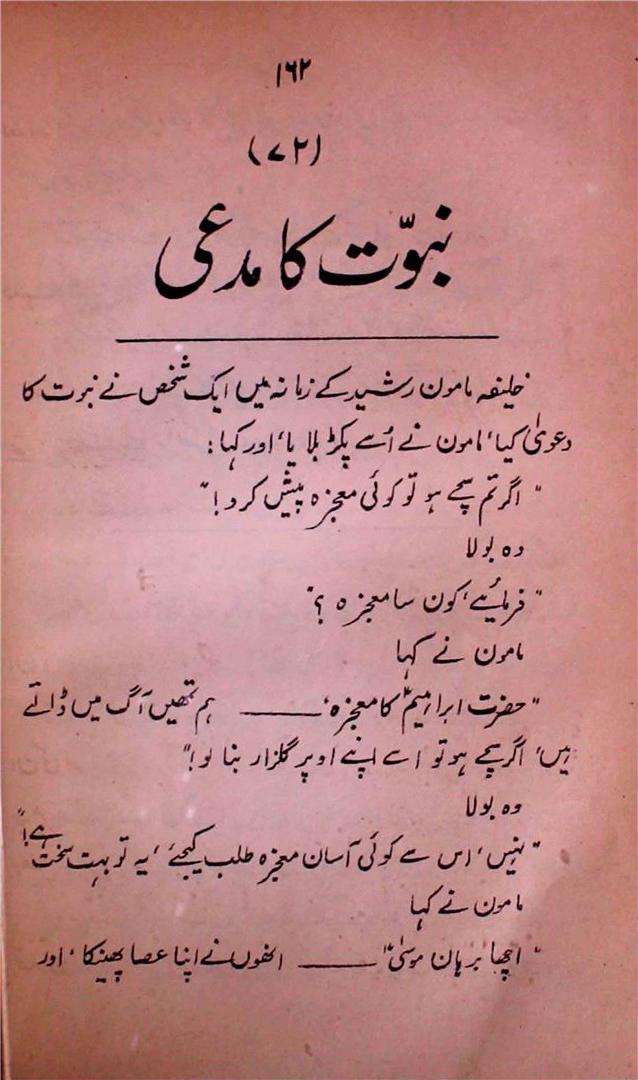 ۱۶۲
(۷۲)
نبوّت کا مدعی
خلیفہ مامون رشید کے زمانہ میں ایک شخص نے نبوت کا
دعویٰ کیا، مامون نے اُسے پکڑ بلایا، اور کہا:
"اگر تم سچے ہو تو کوئی معجزہ پیش کرو!"
وہ بولا
"فرمائیے، کون سا معجزہ؟"
مامون نے کہا
"حضرت ابراہیمؑ کا معجزہ، ——— ہم تمھیں آگ میں ڈالتے
ہیں، اگر سچے ہو تو اسے اپنے اوپر گلزار بنا لو!"
وہ بولا
"نہیں، اس سے کوئی آسان معجزہ طلب کیجئے، یہ تو بہت سخت ہے!"
مامون نے کہا
"اچھا برہان موسیٰؑ ——— انھوں نے اپنا عصا پھینکا، اور